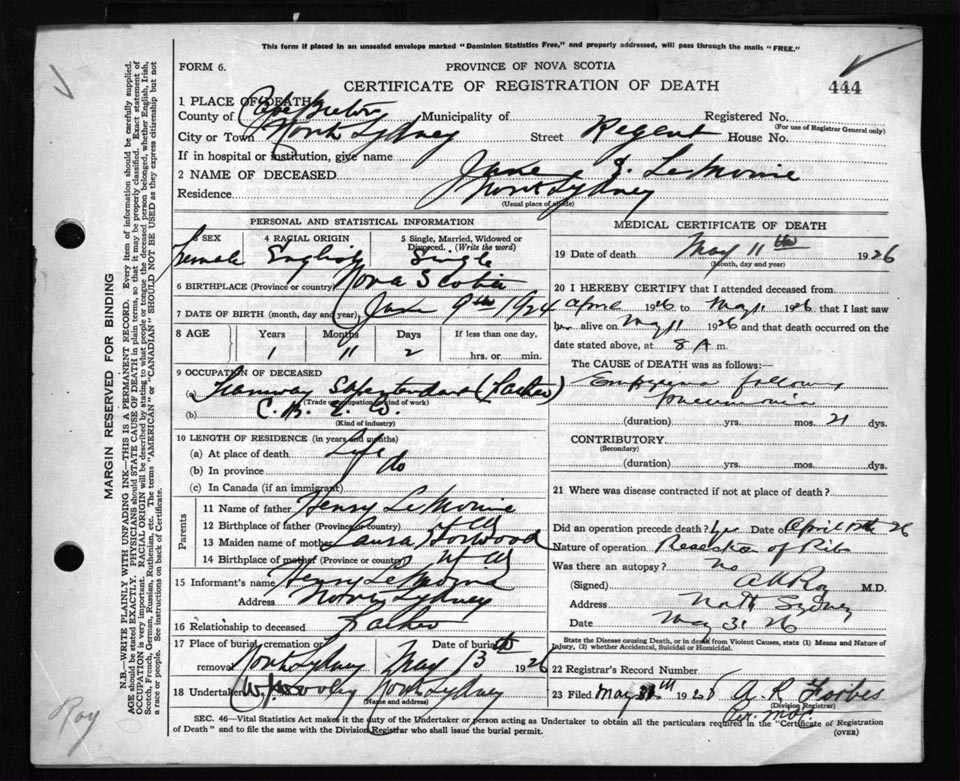 This form if placed in an unsealed envelope marked "Dominion Statistics Free," and properly addressed, will pass through the mails "FREE."
FORM 6.
PROVINCE OF NOVA SCOTIA
CERTIFICATE OF REGISTRATION OF DEATH
444
1 PLACE OF DEATH
County of Cape Breton Municipality of Registered No.
(For use of Registrar General only)
City or Town North Sydney Street Regent House No.
If in hospital or institution, give name
2 NAME OF DECEASED Jane J. LeMoine
Residence North Sydney
(Usual place of abode)
PERSONAL AND STATISTICAL INFORMATION
3 SEX 4 RACIAL ORIGIN 5 Single, Married, Widowed or Divorced. (Write the word)
Female English Single
6 BIRTHPLACE (Province or country) Nova Scotia
7 DATE OF BIRTH (month, day and year) June 9th 1924
8 AGE Years Months Days If less than one day,
1 11 2 hrs. or min.
9 OCCUPATION OF DECEASED
(a) Tramway (Father)
(Trade, occupation or kind of work)
(b) C. B. E. Co.
(Kind of industry)
10 LENGTH OF RESIDENCE (in years and months)
(a) At place of death Life
(b) In province do
(c) In Canada (if an immigrant)
Parents
11 Name of father Henry LeMoine
12 Birthplace of father (Province or country)
13 Maiden name of mother Laura
14 Birthplace of mother
15 Informant's name Henry LeMoine
Address North Sydney
16 Relationship to deceased Father
17 Place of burial, cremation or removal Date of burial
North Sydney May 13th 1926
18 Undertaker North Sydney
(Name and address)
MEDICAL CERTIFICATE OF DEATH
19 Date of death May 11th 1926
(Month, day and year)
20 I HEREBY CERTIFY that I attended deceased from
April 1926 to May 11 1926 that I last saw
alive on May 11 1926 and that death occurred on the
date stated above, at 8 A m.
The CAUSE OF DEATH was as follows:
Empyema following
pneumonia
(duration) yrs. mos. 21 dys.
CONTRIBUTORY
(Secondary)
(duration) yrs. mos. dys.
21 Where was disease contracted if not at place of death?
Did an operation precede death? Yes Date of April 12th 26
Nature of operation Resection of Rib
Was there an autopsy? No
(Signed) Roy M.D.
Address North Sydney
Date May 31 26
State the Disease causing Death, or in death from Violent Causes, state (1) Means and Nature of Injury, (2) whether Accidental, Suicidal or Homicidal.
22 Registrar's Record Number
23 Filed May 1926 A. R. Forbes
(Division Registrar)
SEC. 46—Vital Statistics Act makes it the duty of the Undertaker or person acting as Undertaker to obtain all the particulars required in the "Certificate of Registration
of Death" and to file the same with the Division Registrar who shall issue the burial permit.
(OVER)
MARGIN RESERVED FOR BINDING
N.B.—WRITE PLAINLY WITH UNFADING INK—THIS IS A PERMANENT RECORD. Every item of information should be carefully supplied.
AGE should be stated EXACTLY. PHYSICIANS should STATE CAUSE OF DEATH in plain terms, so that it may be properly classified. Exact statement of
OCCUPATION is very important. RACIAL ORIGIN will be described by stating to what people or tongue the deceased person belonged, whether English, Irish,
Scotch, French, German, Russian, Ruthenian, etc. The terms "AMERICAN" or "CANADIAN" SHOULD NOT BE USED as they express citizenship but not
a race or people. See instructions on back of Certificate.
Roy